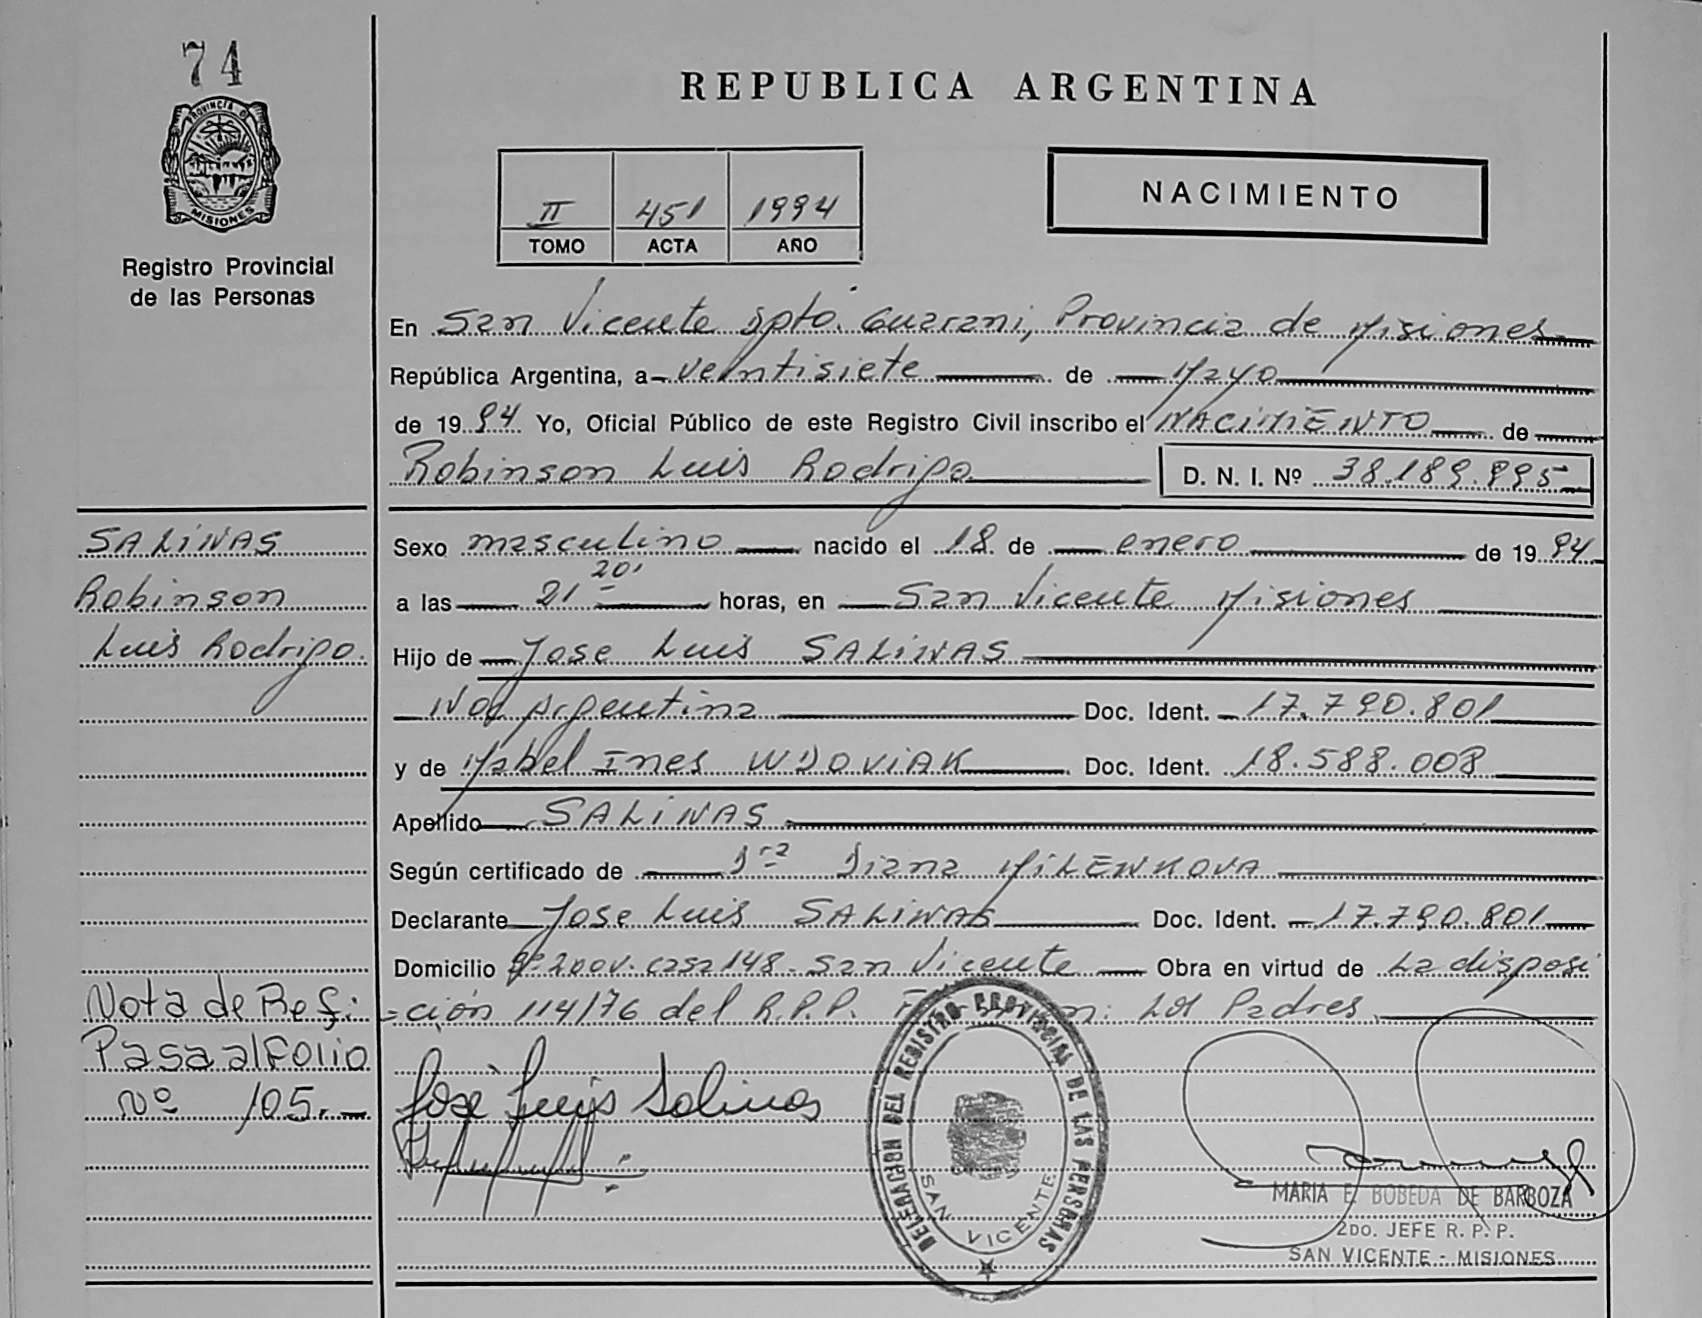 74
PROVINCIA DE
MISIONES
Registro Provincial
de las Personas
REPUBLICA ARGENTINA
II 451 1994
TOMO ACTA AÑO
NACIMIENTO
En San Vicente Dpto. Guarani, Provincia de Misiones
República Argentina, a veintisiete de Mayo
de 1994 Yo, Oficial Público de este Registro Civil inscribo el NACIMIENTO de
Robinson Luis Rodrigo D. N. I. Nº 38.189.895
Sexo masculino nacido el 18 de enero de 1994
a las 21 20' horas, en San Vicente Misiones
Hijo de Jose Luis SALINAS
Nac Argentina Doc. Ident. 17.790.801
y de Mabel Ines WDOVIAK Doc. Ident. 18.588.008
Apellido SALINAS
Según certificado de Dra Diana MILENKOVA
Declarante Jose Luis SALINAS Doc. Ident. 17.790.801
Domicilio Bº 2 nov. casa 148 - San Vicente Obra en virtud de La disposi
=ción 114/76 del R.P.P. Los Padres
SALINAS
Robinson
Luis Rodrigo.
Nota de Ref:
Pasa al Folio
Nº 105.-
José Luis Salinas
DELEGACION DEL REGISTRO PROVINCIAL DE LAS PERSONAS
SAN VICENTE
MARIA E. BOBEDA DE BARBOZA
2DO. JEFE R. P. P.
SAN VICENTE - MISIONES